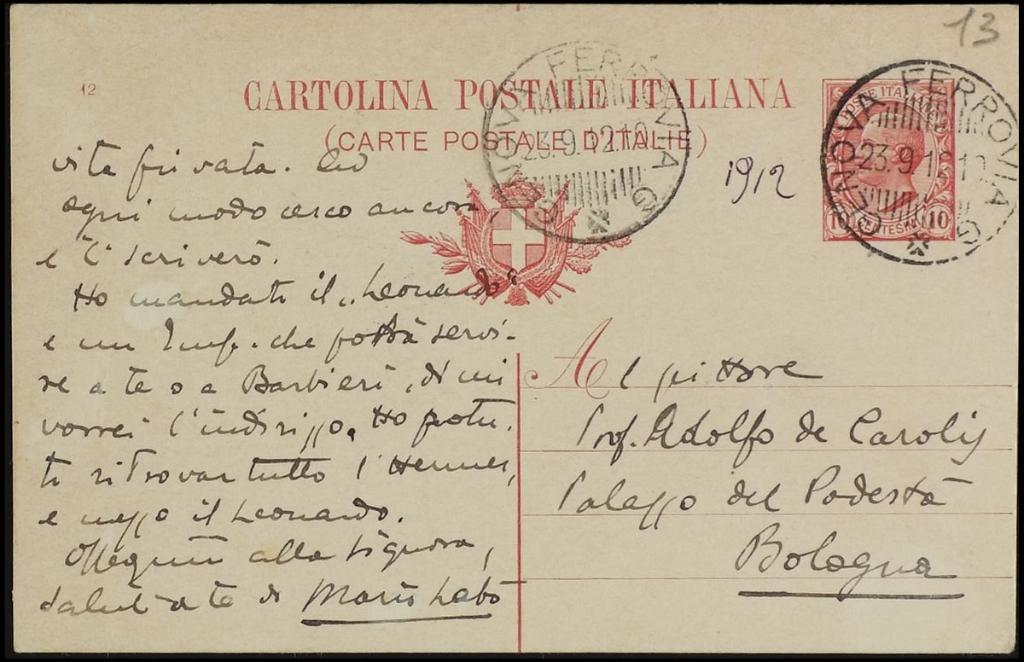 13
12
CARTOLINA POSTALE ITALIANA
(CARTE POSTALE D'ITALIE)
GENOVA FERROVIA
23.9.12.10
GENOVA FERROVIA
23.9.12.10
POSTE ITALIANE
10 CENTESIMI 10
1912
vita privata. Ad
ogni modo cerco ancora,
e ti scriverò.
Ho mandato il "Leonardo"
e un che potrà servi-
re a te o a Barbieri, di cui
vorrei l'indirizzo. Ho potu-
to ritrovar tutto l'Hermes,
e mezzo il Leonardo.
Ossequii alla Signora,
saluti a te di Mario Labò
Al pittore
Prof. Adolfo de Carolis
Palazzo del Podestà
Bologna